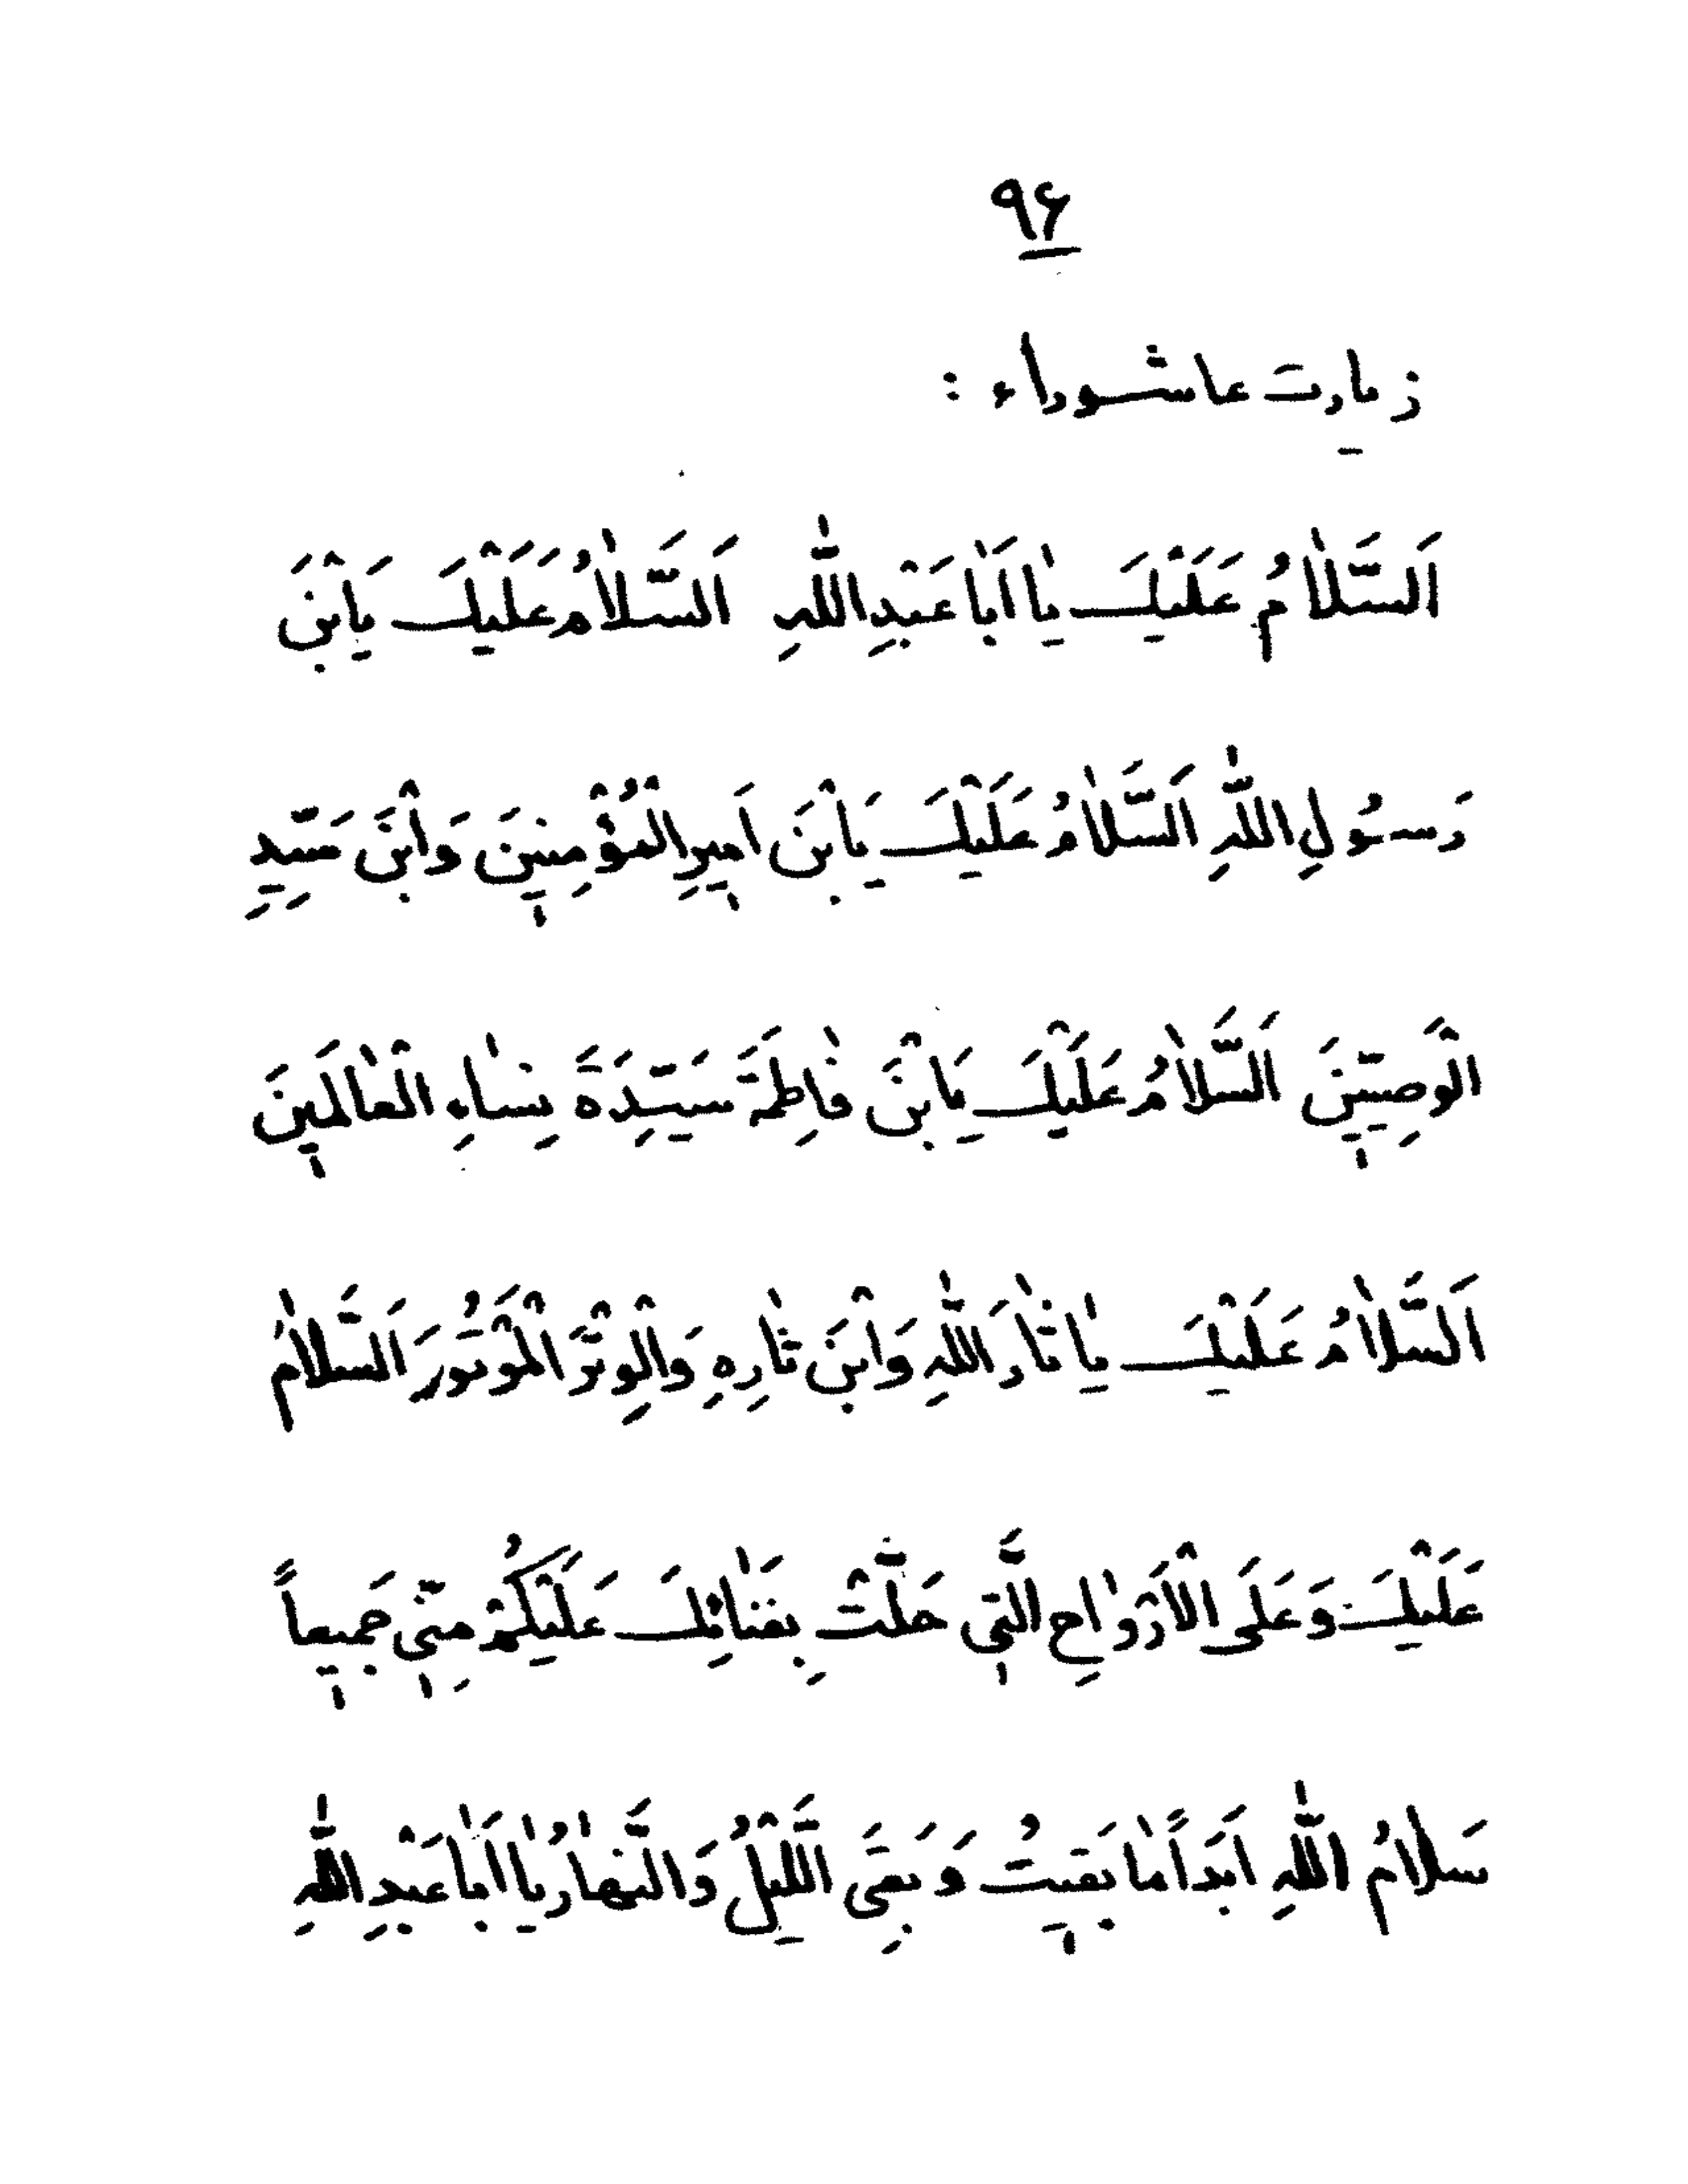 ۹۶
زیارت عاشوراء :
اَلسَّلاٰمُ عَلَیْكَ یٰا اَبٰا عَبْدِاللّٰهِ اَلسَّلاٰمُ عَلَیْكَ یَابْنَ
رَسُولِ اللّٰهِ اَلسَّلاٰمُ عَلَیْكَ یَابْنَ اَمیرِالْمُؤْمِنینَ وَابْنَ سَیِّدِ
الْوَصِیّینَ اَلسَّلاٰمُ عَلَیْكَ یَابْنَ فٰاطِمَةَ سَیِّدَةَ نِسٰاءِ الْعٰالَمینَ
اَلسَّلاٰمُ عَلَیْكَ یٰا ثٰارَ اللّٰهِ وَابْنَ ثٰارِهِ وَالْوِتْرَ الْمَوْتُورَ اَلسَّلاٰمُ
عَلَیْكَ وَ عَلَی الْاَرْوٰاحِ الَّتی حَلَّتْ بِفِنٰائِكَ عَلَیْكُمْ مِنّی جَمیعاً
سَلامُ اللّٰهِ اَبَداً مٰا بَقیتُ وَ بَقِیَ اللَّیْلُ وَ النَّهٰارُ یٰا اَبٰا عَبْدِ اللّٰهِ